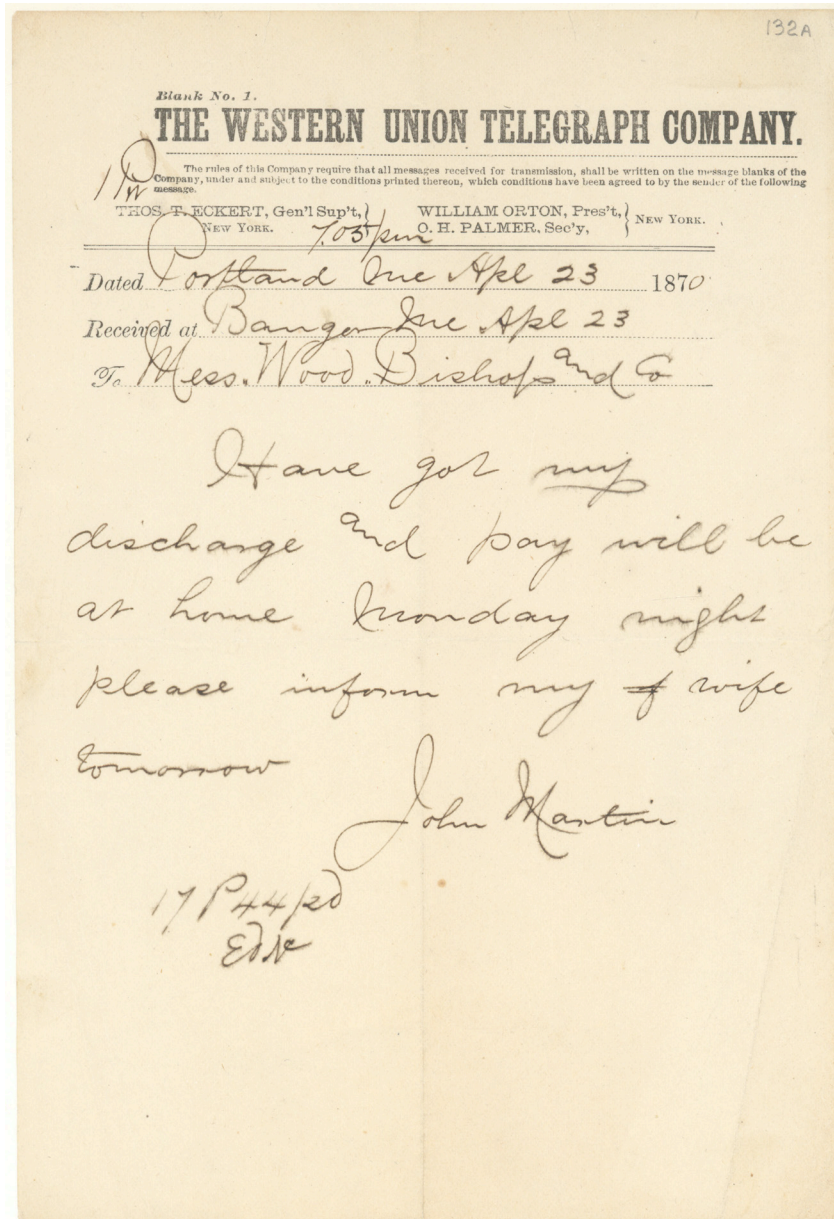 132A
Blank No. 1.
THE WESTERN UNION TELEGRAPH COMPANY.
The rules of this Company require that all messages received for transmission, shall be written on the message blanks of the
Company, under and subject to the conditions printed thereon, which conditions have been agreed to by the sender of the following
message.
THOS. T. ECKERT, Gen'l Sup't, } WILLIAM ORTON, Pres't, }
NEW YORK. O. H. PALMER, Sec'y, } NEW YORK.
7.05 pm
Dated Portland Me Apl 23 1870
Received at Bangor Me Apl 23
To Mess. Wood. Bishop and Co
Have got my
discharge and pay will be
at home Monday night
please inform my wife
tomorrow
John Martin
17 P 44 pd